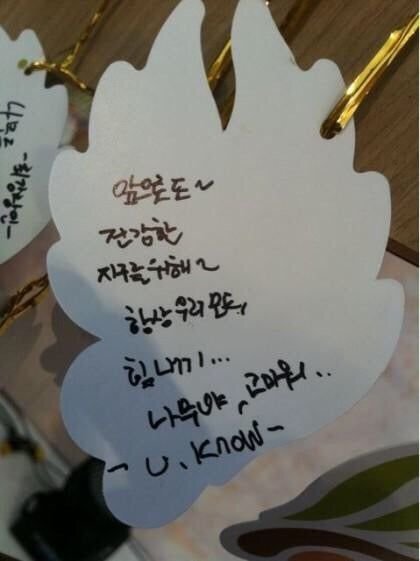 앞으로도~
건강한
지구를 위해~
항상 우리 모두,
힘내기...
나무야, 고마워..
- U. KNOW -
나무를